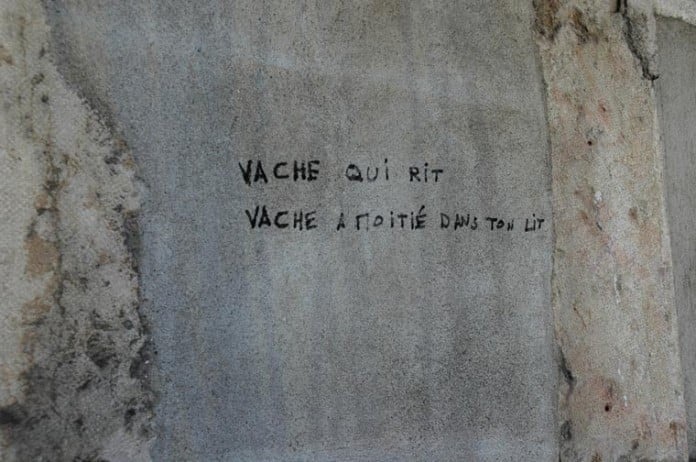 VACHE QUi RiT
VACHE A MOiTiÉ DANS TON LiT